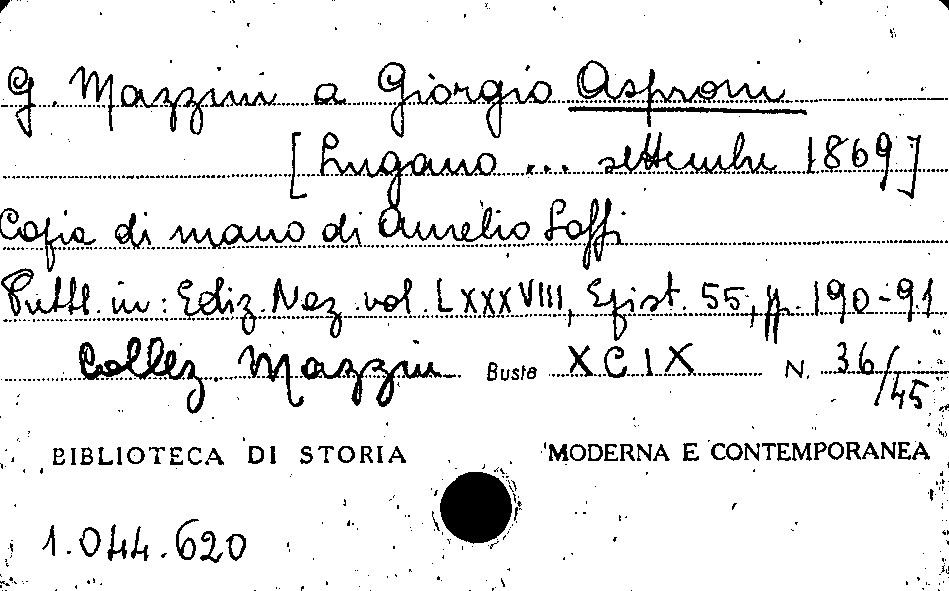 G. Mazzini a Giorgio Asproni
[Lugano ... settembre 1869]
Copia di mano di Aurelio Saffi
Pubbl. in: Ediz. Naz. vol. LXXXVIII, Epist. 55, pp. 190-91
Collez. Mazzini Busta XCIX N. 36/45
BIBLIOTECA DI STORIA MODERNA E CONTEMPORANEA
1.044.620